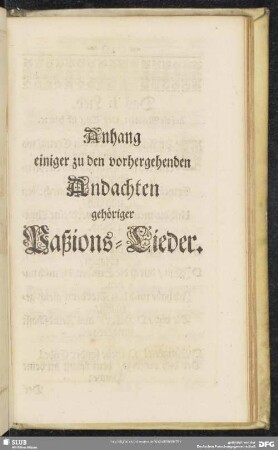 Anhang
einiger zu den vorhergehenden
Andachten
gehöriger
Paßions-Lieder.
SLUB
DFG